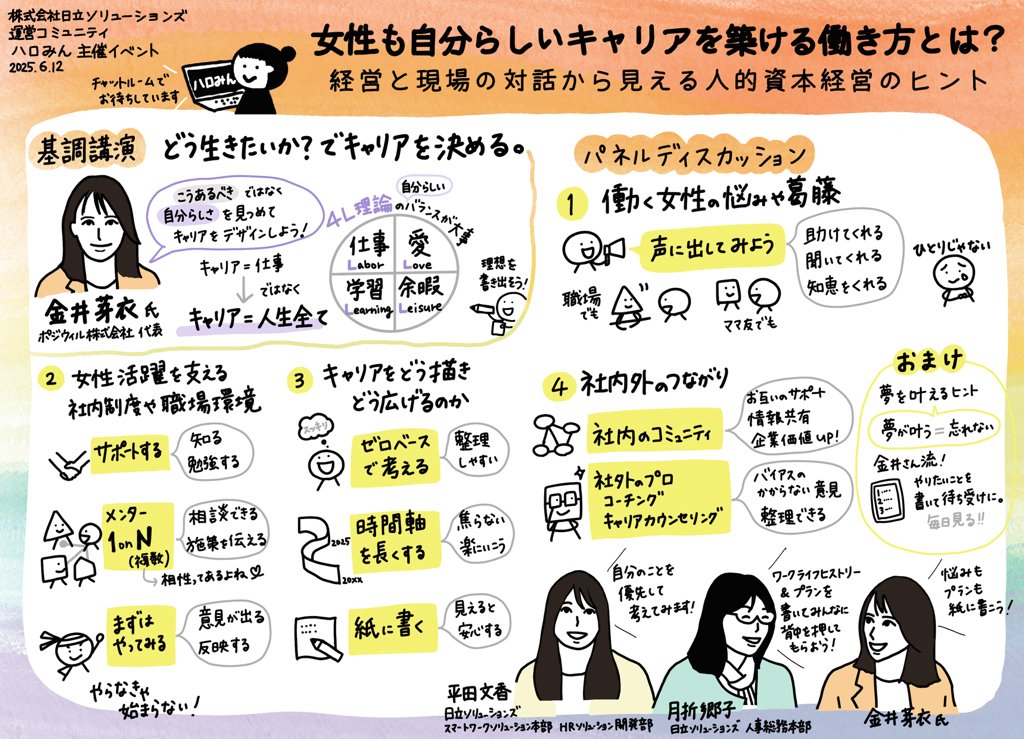 株式会社日立ソリューションズ
運営コミュニティ
ハロみん 主催イベント
2025.6.12
チャットルームで
お待ちしています
ハロみん
女性も自分らしいキャリアを築ける働き方とは?
経営と現場の対話から見える人的資本経営のヒント
基調講演
どう生きたいか?でキャリアを決める。
金井芽衣氏
ポジウィル株式会社 代表
こうあるべき ではなく
自分らしさ を見つめて
キャリアをデザインしよう!
キャリア=仕事
ではなく
キャリア=人生全て
4L理論
自分らしい
のバランスが大事
仕事
Labor
愛
Love
学習
Learning
余暇
Leisure
理想を
書き出そう!
パネルディスカッション
1 働く女性の悩みや葛藤
声に出してみよう
助けてくれる
聞いてくれる
知恵をくれる
ひとりじゃない
職場
でも
ママ友でも
2 女性活躍を支える
社内制度や職場環境
サポートする
知る
勉強する
メンター
1 on N
(複数)
相談できる
施策を伝える
相性ってあるよね♡
まずは
やってみる
意見が出る
反映する
やらなきゃ
始まらない!
3 キャリアをどう描き
どう広げるのか
スッキリ
ゼロベース
で考える
整理
しやすい
2025
20XX
時間軸
を長くする
焦らない
楽にいこう
紙に書く
見えると
安心する
4 社内外のつながり
社内のコミュニティ
お互いのサポート
情報共有
企業価値UP!
社外のプロ
コーチング
キャリアカウンセリング
バイアスの
かからない意見
整理できる
おまけ
夢を叶えるヒント
夢が叶う=忘れない
金井さん流!
やりたいことを
書いて待ち受けに。
毎日見る!!
1
2
3
自分のことを
優先して
考えてみます!
平田文香
日立ソリューションズ
スマートワークソリューション本部 HRソリューション開発部
ワークライフヒストリー
&プランを
書いてみんなに
背中を押して
もらおう!
月折郷子
日立ソリューションズ 人事総務本部
悩みも
プランも
紙に書こう!
金井芽衣氏